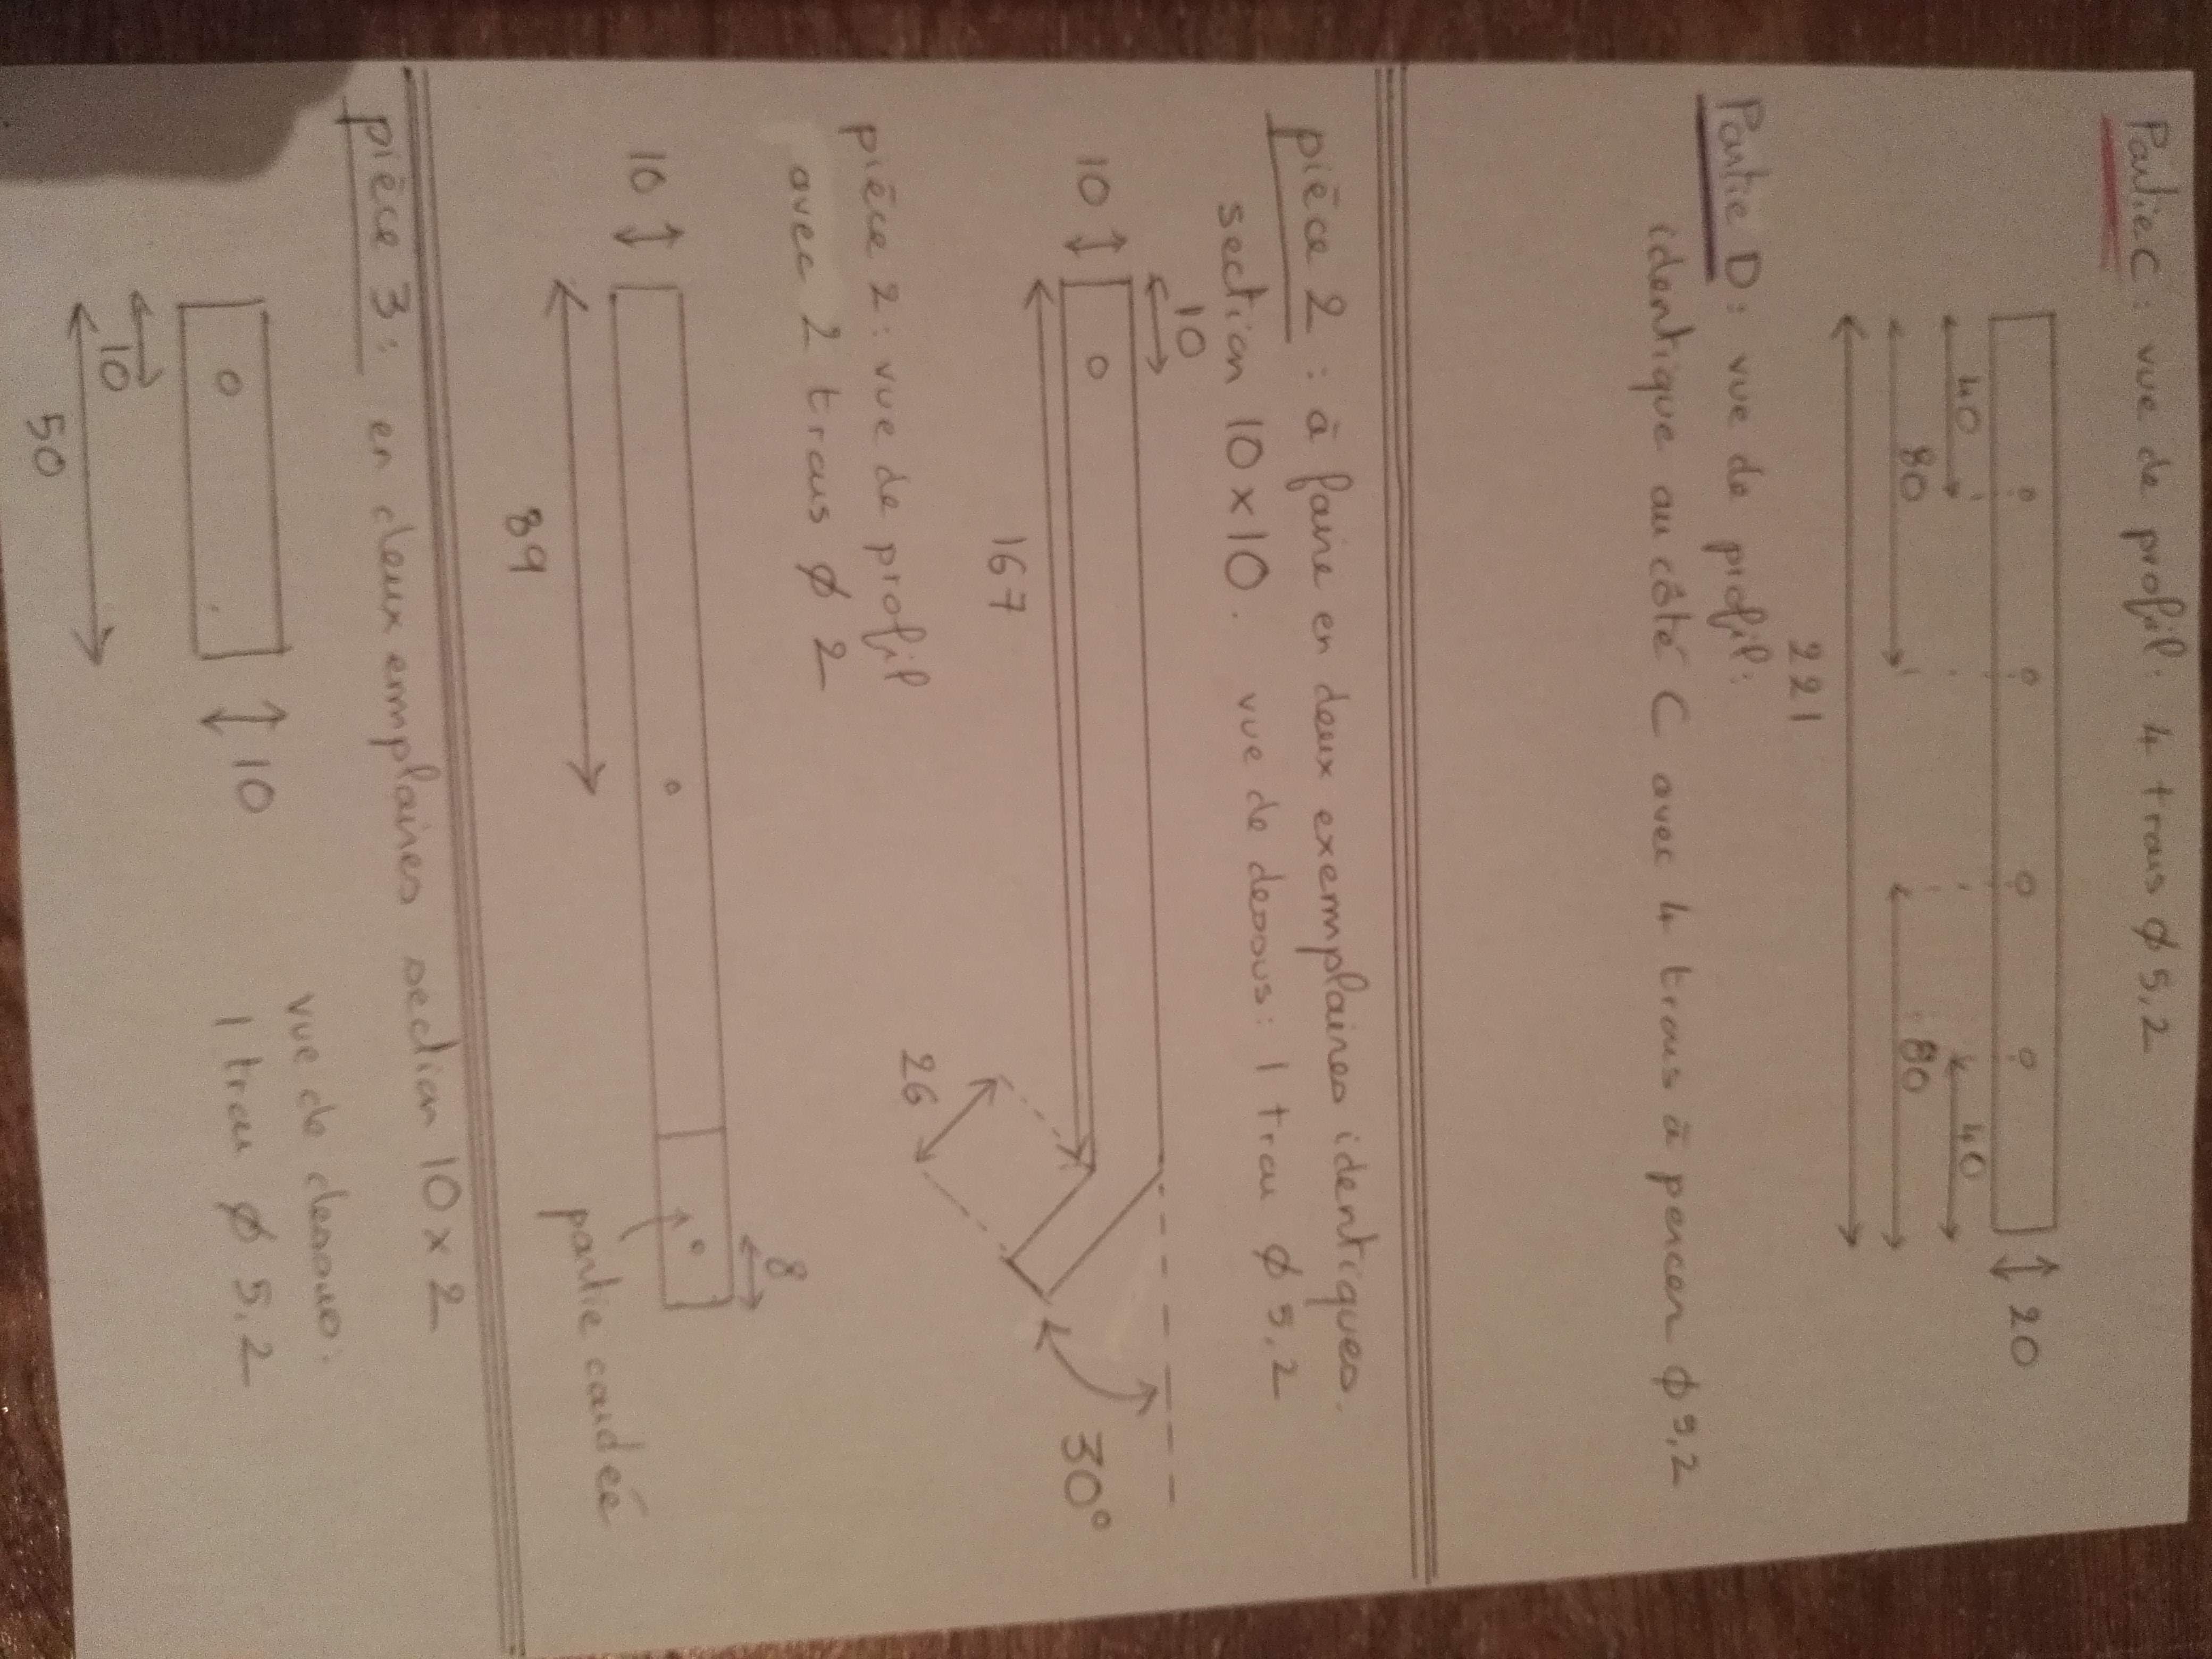 Partie C : vue de profil : 4 trous ø 5,2
40
40
80
80
221
20
Partie D : vue de profil :
identique au côté C avec 4 trous à percer ø 5,2
pièce 2 : à faire en deux exemplaires identiques.
section 10 x 10. vue de dessus : 1 trou ø 5,2
10
10
167
26
30°
pièce 2 : vue de profil
avec 2 trous ø 2
10
8
89
partie coudée
pièce 3 : en deux emplaires section 10 x 2
vue de dessus :
1 trou ø 5,2
10
10
50